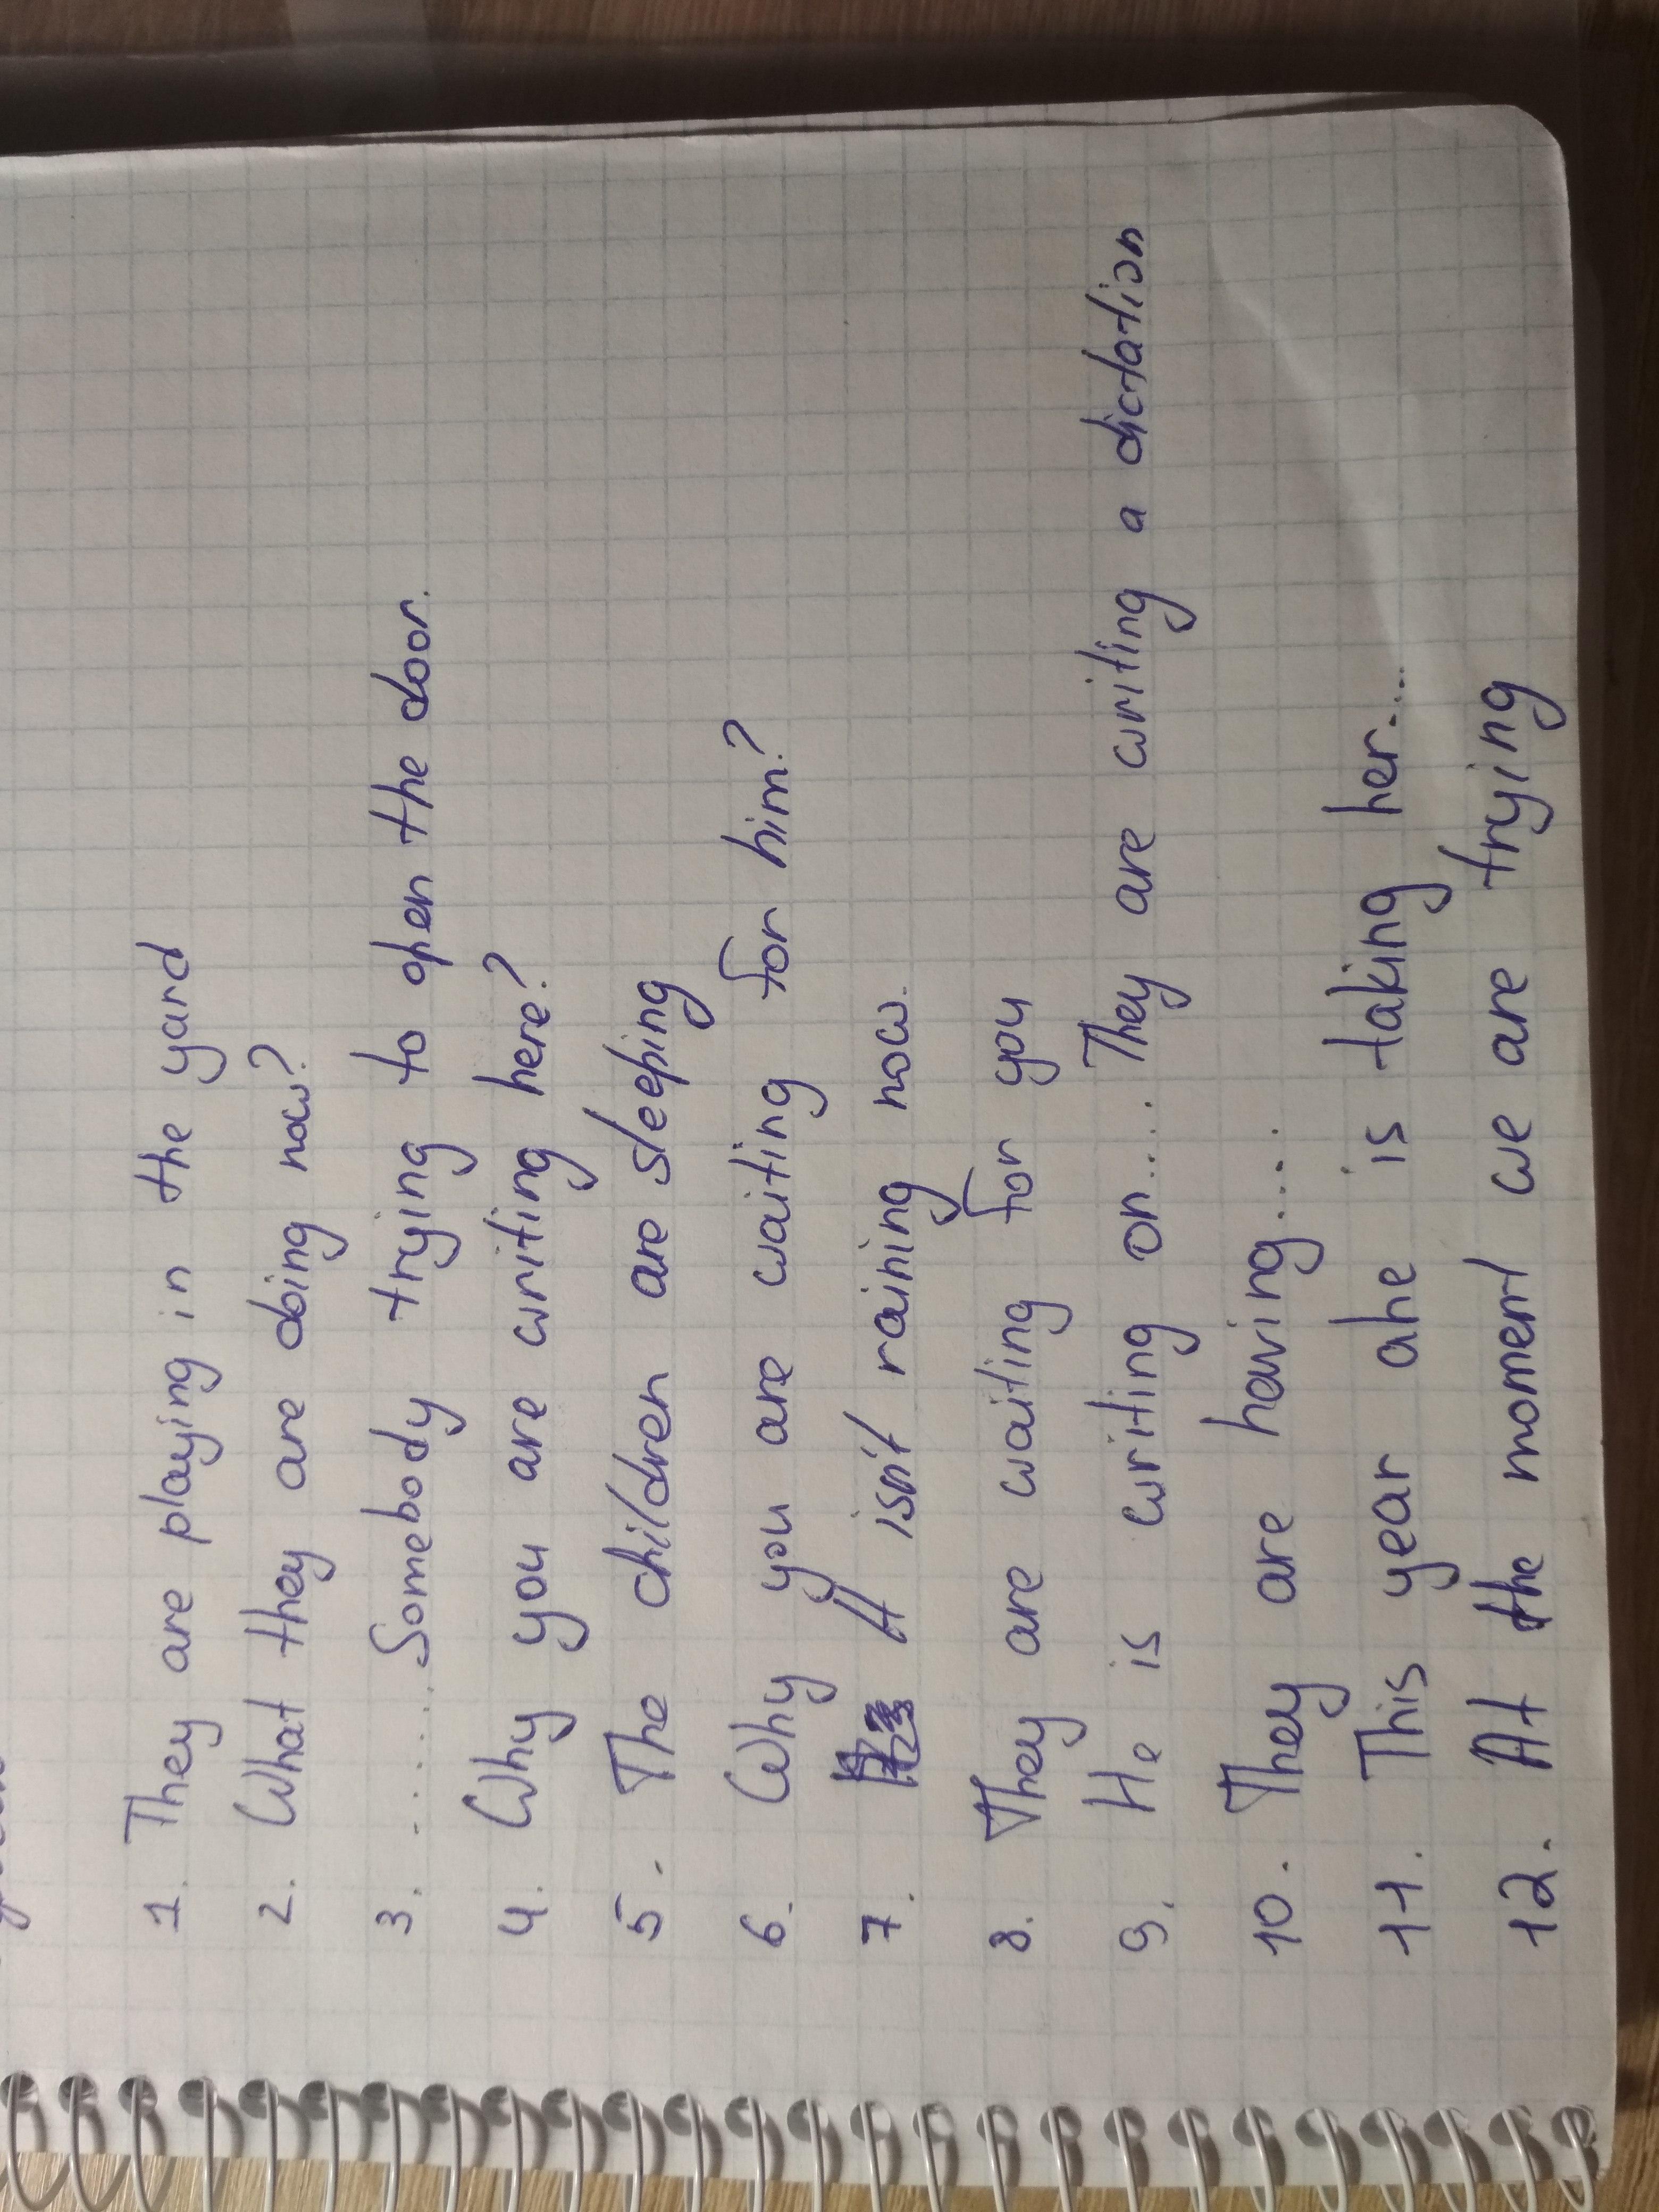 1. They are playing in the yard
2. What they are doing now?
3. ........Somebody trying to open the door.
4. Why you are writing here?
5. The children are sleeping
6. Why you are waiting for him?
7. It isn't raining now.
8. They are waiting for you
9. He is writing on.... They are writing a dictation
10. They are having....
11. This year ahe is taking her....
12. At the moment we are trying